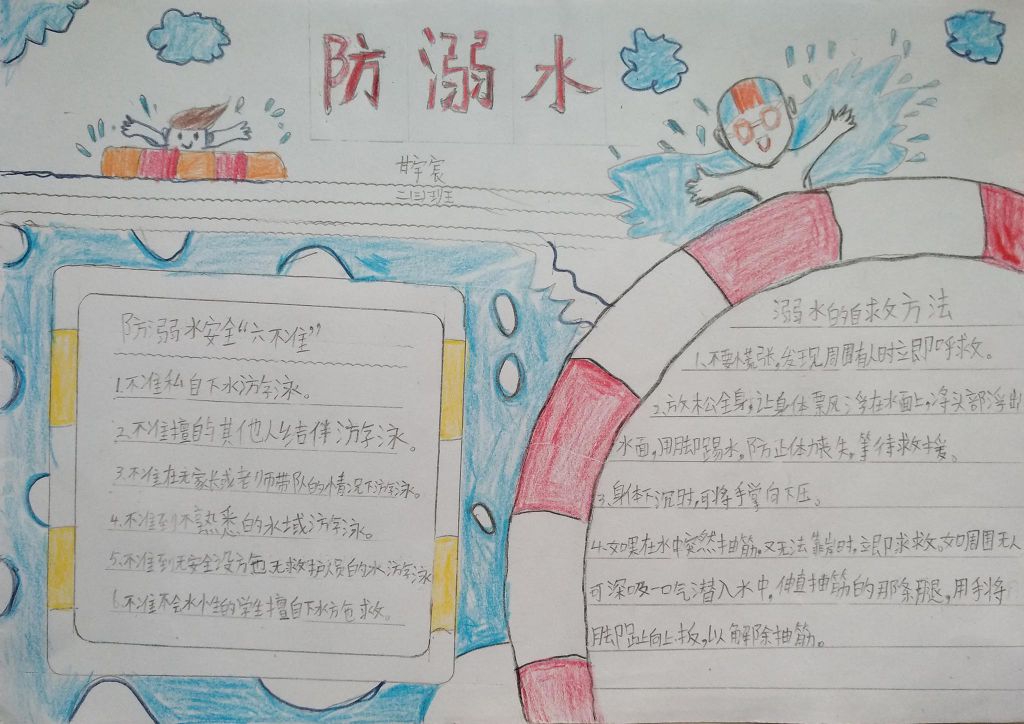 防溺水
甘宇宸
二(三)班
防溺水安全“六不准”
1.不准私自下水游泳。
2.不准擅自与其他人结伴游泳。
3.不准在无家长或老师带队的情况下游泳。
4.不准到不熟悉的水域游泳。
5.不准到无安全设施无救护人员的水游泳
6.不准不会水性的学生擅自下水施救。
溺水的自救方法
1.不要慌张,发现周围有人时立即呼救。
2.放松全身,让身体飘浮在水面上,净头部浮出
水面,用脚踢水,防止体力丧失,等待救援。
3.身体下沉时,可将手掌向下压。
4.如果在水中突然抽筋,又无法靠岸时,立即求救。如周围无人
可深吸一口气潜入水中,伸直抽筋的那条腿,用手将
脚趾向上扳,以解除抽筋。